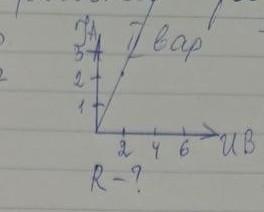 I A
II вар
3
2
1
2 4 6 U В
R - ?